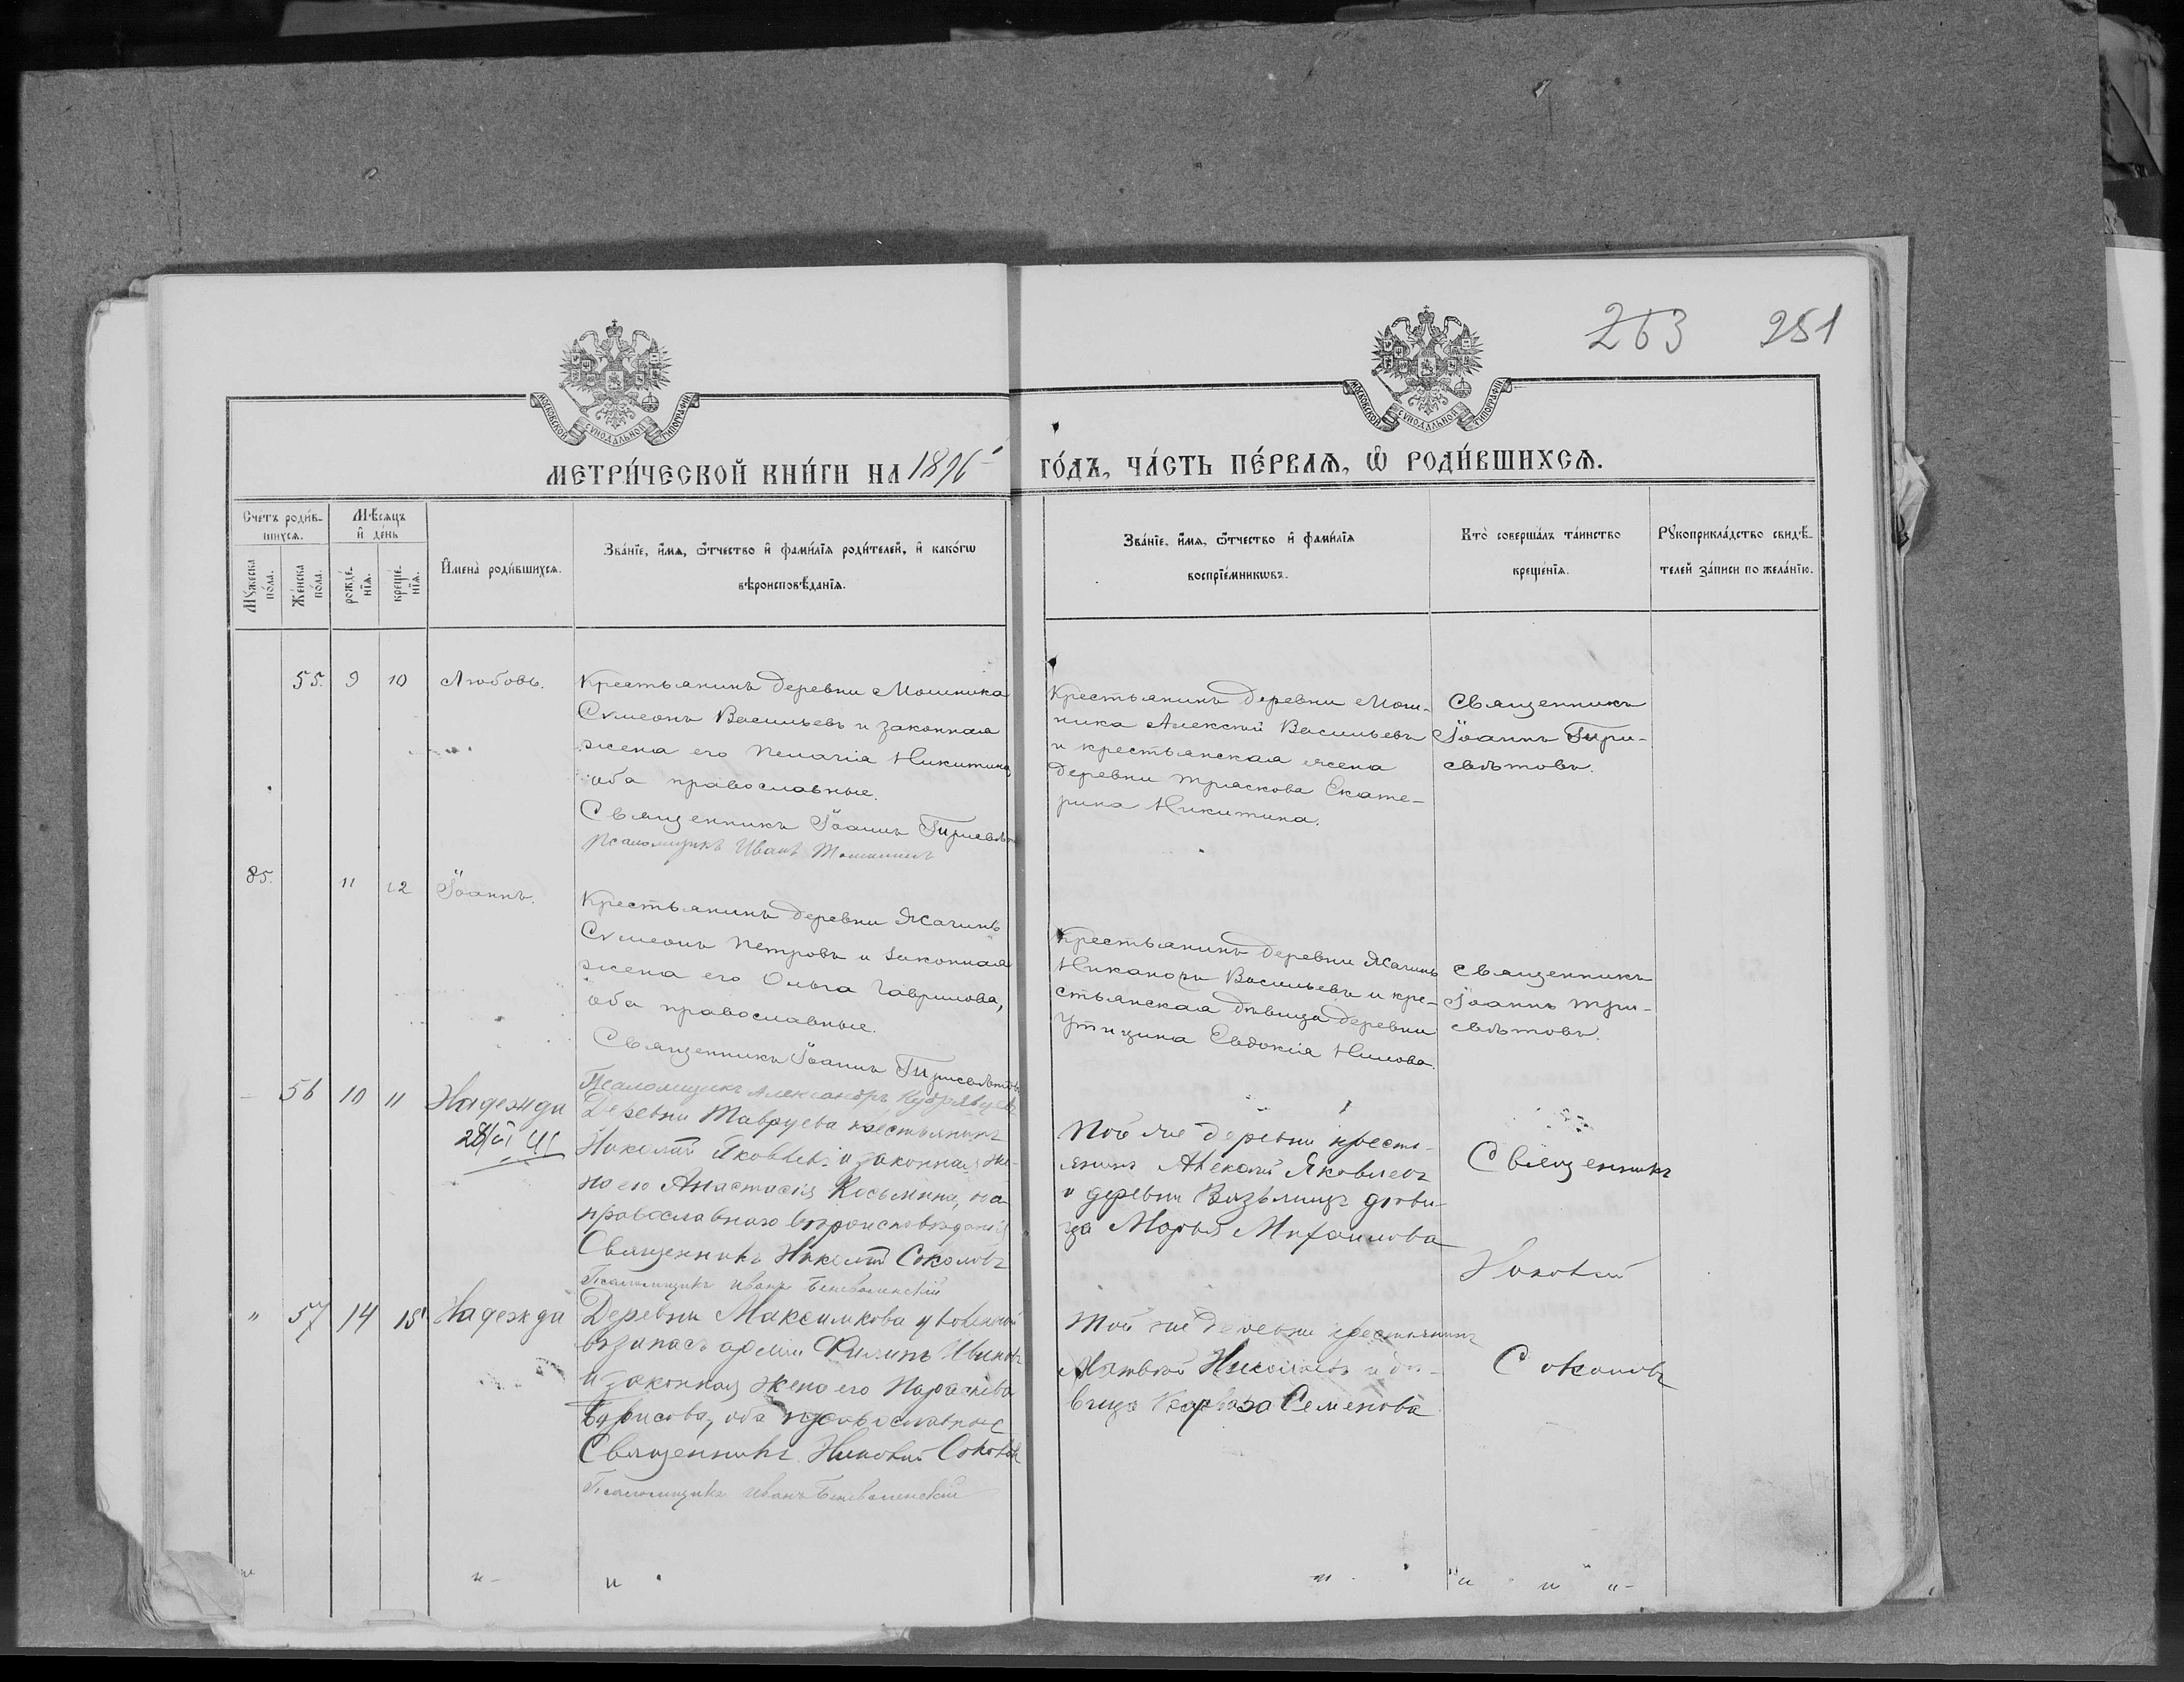 263 251
МОСКОВСКОЙ СУНОДАЛЬНОЙ ТИПОГРАФІИ
МОСКОВСКОЙ СУНОДАЛЬНОЙ ТИПОГРАФІИ
МЕТРИ́ЧЕСКОЙ КНИ́ГИ НА 1896
ГО́ДЪ, ЧА́СТЬ ПЕ́РВАѦ, Ѡ҆ РОДИ́ВШИХСѦ.
Сче́тъ роди́в-
шихсѧ.
Мѣ́сѧцъ
и҆ де́нь
Мꙋ́жеска
по́ла.
Же́нска
по́ла.
рожде́-
нїѧ.
креще́-
нїѧ.
И҆мена̀ роди́вшихсѧ.
Зва́нїе, и҆́мѧ, ѻ҆́тчество и҆ фами́лїѧ роди́телей, и҆ како́гѡ
вѣроисповѣ́данїѧ.
Зва́нїе, и҆́мѧ, ѻ҆́тчество и҆ фами́лїѧ
воспрїе́мникѡвъ.
Кто̀ соверша́лъ та́инство
креще́нїѧ.
Рꙋкоприкла́дство свидѣ́-
телей за́писи по жела́нїю.
55. 9 10 Любовь.
Крестьянинъ деревни Мошника
Сѵмеонъ Васильевъ и законная
жена его Пелагія Никитина,
оба православные.
Священникъ Іоаннъ Трисвѣтовъ
Псаломщикъ Иванъ
Крестьянинъ деревни Мош-
ника Алексѣй Васильевъ
и крестьянская жена
деревни Тряскова Екате-
рина Никитина.
Священникъ
Іоаннъ Три-
свѣтовъ.
85. 11 12 Іоаннъ.
Крестьянинъ деревни
Сѵмеонъ Петровъ и законная
жена его Ольга Гаврилова,
оба православные.
Священникъ Іоаннъ Трисвѣтовъ
Псаломщикъ Александръ Кудрявцевъ
Крестьянинъ деревни
Никаноръ Васильевъ и кре-
стьянская дѣвица деревни
Утицина Евдокія Нилова.
Священникъ
Іоаннъ Три-
свѣтовъ.
56 10 11 Надежда
Деревни Тавруева крестьянинъ
Николай Яковлевъ и законная же-
на его Анастасія Косьмина, оба
православнаго вѣроисповѣданія
Священникъ Николай Соколовъ
Псаломщикъ Иванъ Беневоленскій
Той же деревни кресть-
янинъ Алексѣй Яковлевъ
и деревни дѣви-
ца Марья Михаилова
Священникъ
Николай
" 57 14 15 Надежда
Деревни Максимкова уволенный
въ запасъ арміи Филипъ Ивановъ
и законная жена его Параскева
Борисова, оба православные
Священникъ Николай Соколовъ
Псаломщикъ Иванъ Беневоленскій
Той же деревни крестьянинъ
Матвѣй Николаевъ и дѣ-
вица Варвара Семенова
Соколовъ